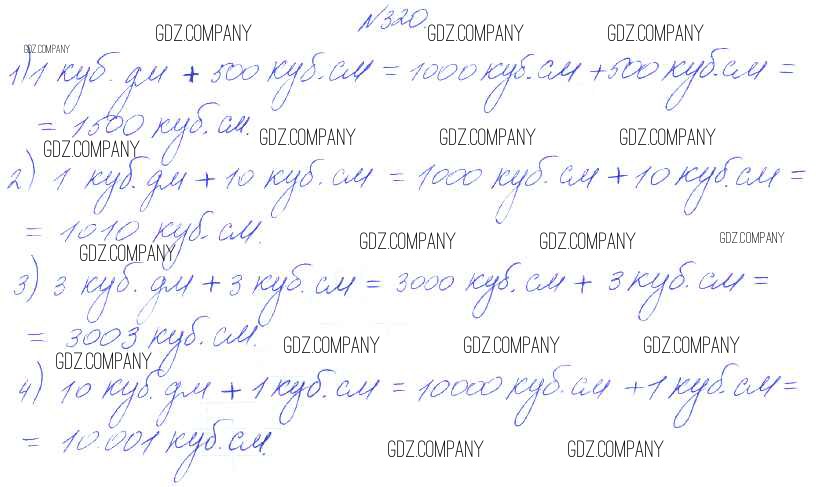 №320.
GDZ.COMPANY GDZ.COMPANY GDZ.COMPANY
GDZ.COMPANY
1) 1 куб. дм + 500 куб.см = 1000 куб.см + 500 куб.см =
= 1500 куб.см.
GDZ.COMPANY GDZ.COMPANY GDZ.COMPANY GDZ.COMPANY
2) 1 куб.дм + 10 куб.см = 1000 куб.см + 10 куб.см =
= 1010 куб.см.
GDZ.COMPANY GDZ.COMPANY GDZ.COMPANY GDZ.COMPANY
3) 3 куб. дм + 3 куб.см = 3000 куб.см + 3 куб.см =
= 3003 куб.см.
GDZ.COMPANY GDZ.COMPANY GDZ.COMPANY GDZ.COMPANY
4) 10 куб.дм + 1 куб.см = 10000 куб.см + 1 куб.см =
= 10.001 куб.см.
GDZ.COMPANY GDZ.COMPANY